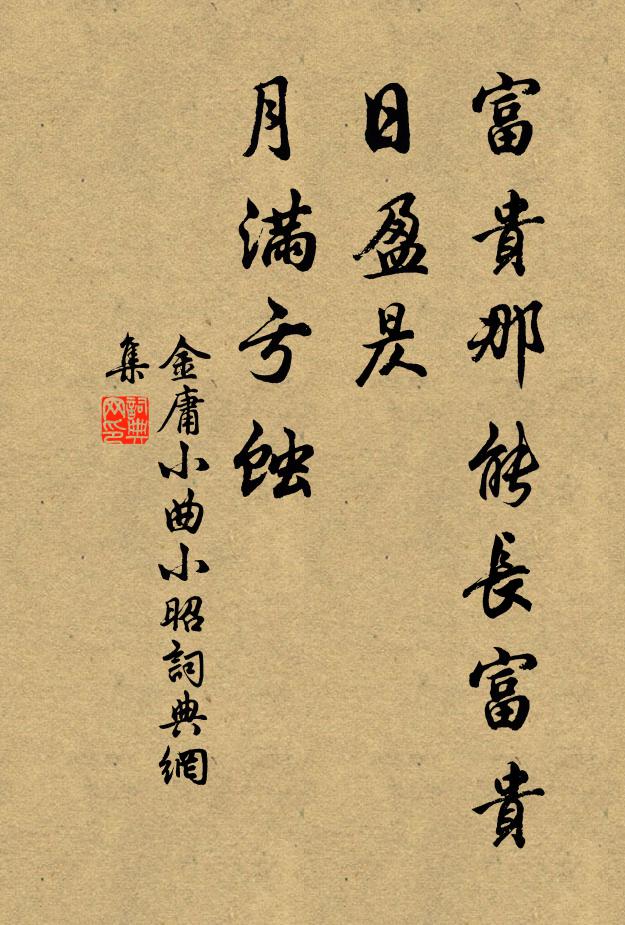 富貴那能長富貴
日盈昃
月满亏蝕
金庸小曲小昭詞典網
集
詞典
网印